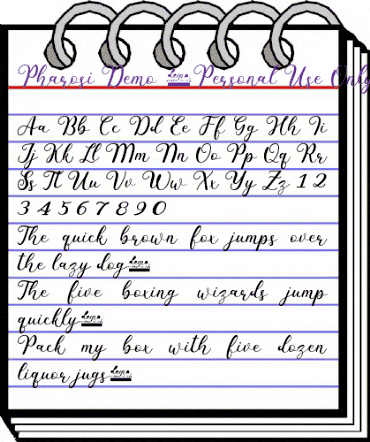 Pharosi Demo demo Personal Use Only
Aa Bb Cc Dd Ee Ff Gg Hh Ii
Jj Kk Ll Mm Nn Oo Pp Qq Rr
Ss Tt Uu Vv Ww Xx Yy Zz 1 2
3 4 5 6 7 8 9 0
The quick brown fox jumps over
the lazy dog demo
The five boxing wizards jump
quickly demo
Pack my box with five dozen
liquor jugs demo